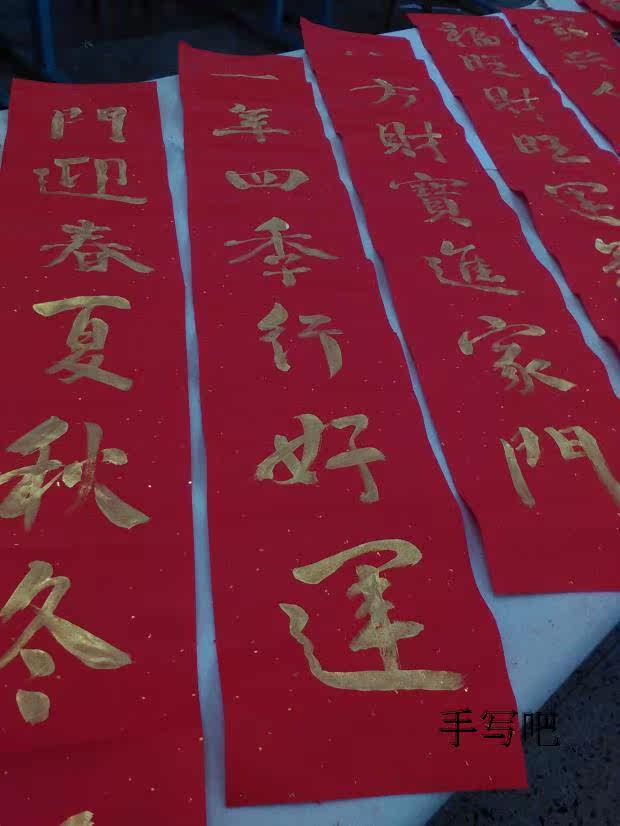 門迎春夏秋冬
一年四季行好運
八方財寶進家門
福旺財旺運
家興人
手写吧